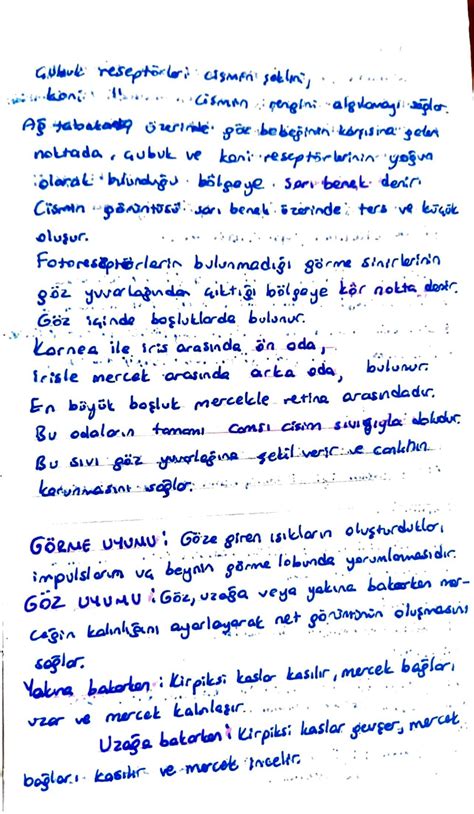 Çubuk reseptörleri cismin şeklini,
koni cismin rengini algılamayı sağlar.
Ağ tabakası üzerinde göz bebeğinin karşısına gelen
noktada, çubuk ve koni reseptörlerinin yoğun
olarak bulunduğu bölgeye sarı benek denir.
Cismin görüntüsü sarı benek üzerinde ters ve küçük
oluşur.
Fotoreseptörlerin bulunmadığı görme sinirlerinin
göz yuvarlağından çıktığı bölgeye kör nokta denir.
Göz içinde boşluklarda bulunur.
Kornea ile iris arasında ön oda,
irisle mercek arasında arka oda, bulunur.
En büyük boşluk mercekle retina arasındadır.
Bu odaların tamamı camsı cisim sıvısıyla doludur.
Bu sıvı göz yuvarlağına şekil verir ve canlılığın
korunmasını sağlar.
GÖRME UYUMU: Göze giren ışıkların oluşturdukları
impulsların beynin görme lobunda yorumlamasıdır.
GÖZ UYUMU: Göz, uzağa veya yakına bakarken mer-
ceğin kalınlığını ayarlayarak net görüntünün oluşmasını
sağlar.
Yakına bakarken: Kirpiksi kaslar kasılır, mercek bağları
uzar ve mercek kalınlaşır.
Uzağa bakarken: Kirpiksi kaslar gevşer, mercek
bağları kasılır ve mercek incelir.